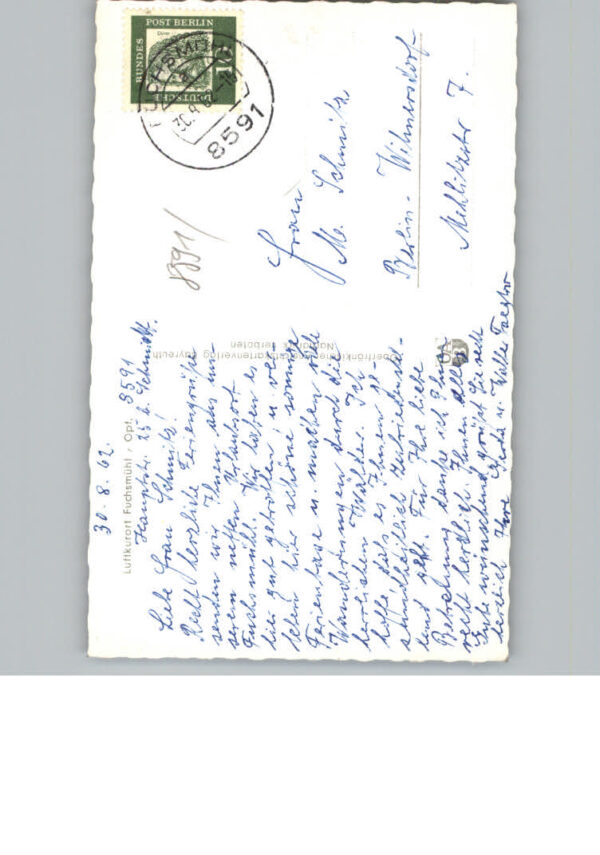 30.8.62.
Luftkurort Fuchsmühl, Opf. 8591
Hauptstr. 25 b. Schmidt.
Liebe Frau Schmitz!
Recht herzliche Feriengrüße
senden wir Ihnen aus un-
serem netten Urlaubsort
Fuchsmühl. Wir haben es
hier gut getroffen u. ver-
leben hier schöne sonnige
Ferientage u. machen viele
Wanderungen durch die
herrlichen Wälder. Ich
hoffe daß es Ihnen ge-
sundheitlich zufriedenstel-
lend geht. Für Ihre liebe
danke ich Ihnen
recht herzlich. Ihnen alles
Gute wünschend grüßt Sie recht
herzlich Ihre u. Walter
Oberfränkischer Ansichtskartenverlag Bayreuth
Nachdruck verboten
DEUTSCHE BUNDESPOST BERLIN
Dürer
10
8591
8591
Frau
M. Schmitz
Berlin-Wilmersdorf
Mehlitzstr 7.